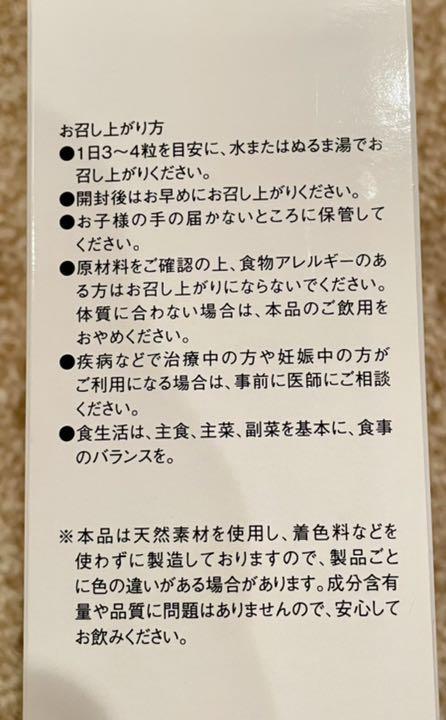 お召し上がり方
●1日3〜4粒を目安に、水またはぬるま湯でお
召し上がりください。
●開封後はお早めにお召し上がりください。
●お子様の手の届かないところに保管して
ください。
●原材料をご確認の上、食物アレルギーのあ
る方はお召し上がりにならないでください。
体質に合わない場合は、本品のご飲用を
おやめください。
●疾病などで治療中の方や妊娠中の方が
ご利用になる場合は、事前に医師にご相談
ください。
●食生活は、主食、主菜、副菜を基本に、食事
のバランスを。
※本品は天然素材を使用し、着色料などを
使わずに製造しておりますので、製品ごと
に色の違いがある場合があります。成分含有
量や品質に問題はありませんので、安心して
お飲みください。